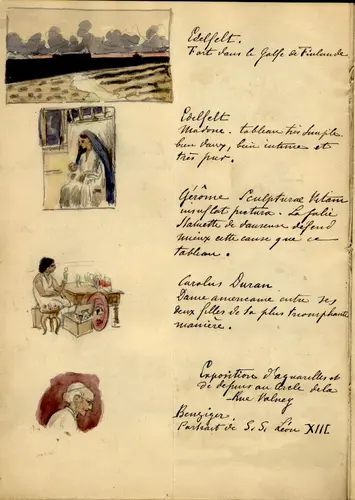 Edelfelt.
Fort dans le Golfe de Finlande
Edelfelt
Madone. tableau très simple
bien doux, bien intime et
très pur.
Gérôme Sculpturae Vitam
insuflat pictura. La jolie
statuette de danseuse défend
mieux cette cause que ce
tableau.
Carolus Duran
Dame américaine entre ses
deux filles de sa plus triomphante
manière.
Exposition d'aquarelles et
de dessins au Cercle de la
Rue Volney
Benziger.
Portrait de S. S. Léon XIII